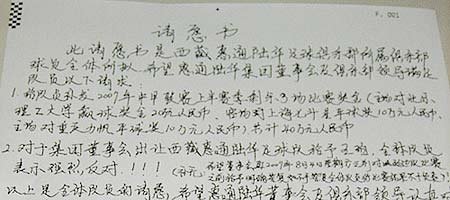 P. 001
请愿书
此请愿书是西藏惠通陆华足球俱乐部所属俱乐部
球员全体倒拟 希望惠通陆华集团董事会及俱乐部领导满足
队员以下请求
1. 给队员补发2007年中甲联赛上半赛季剩余3场比赛奖金（主场对北京
理工大学赢球奖金20万元人民币 客场对上海七斗星平球奖10万元人民币
主场对重庆力帆平球奖10万元人民币）共计40万元人民币
2. 对于集团董事会出让西藏惠通陆华足球队给予王珀 全体队员
表示强烈反对!!!
希望董事会
2007年8月4日
以上是全体队员的请愿 希望惠通陆华董事会及俱乐部领导认真对